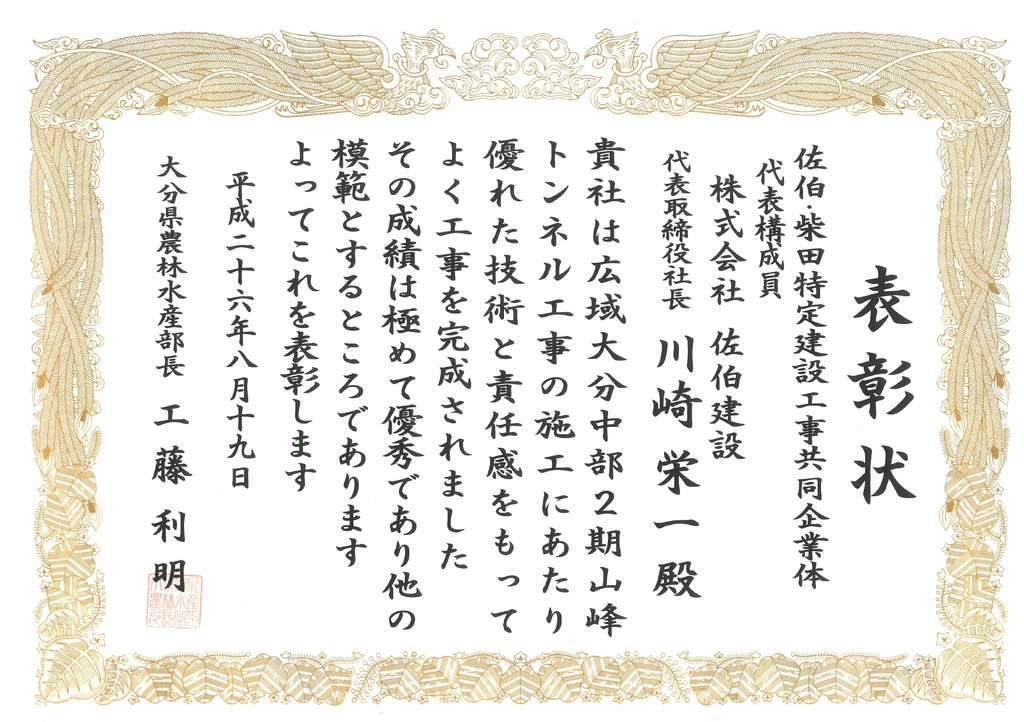 表彰状
佐伯・柴田特定建設工事共同企業体
代表構成員
株式会社 佐伯建設
代表取締役社長 川崎栄一殿
貴社は広域大分中部2期山峰
トンネル工事の施工にあたり
優れた技術と責任感をもって
よく工事を完成されました
その成績は極めて優秀であり他の
模範とするところであります
よってこれを表彰します
平成二十六年八月十九日
大分県農林水産部長 工藤利明